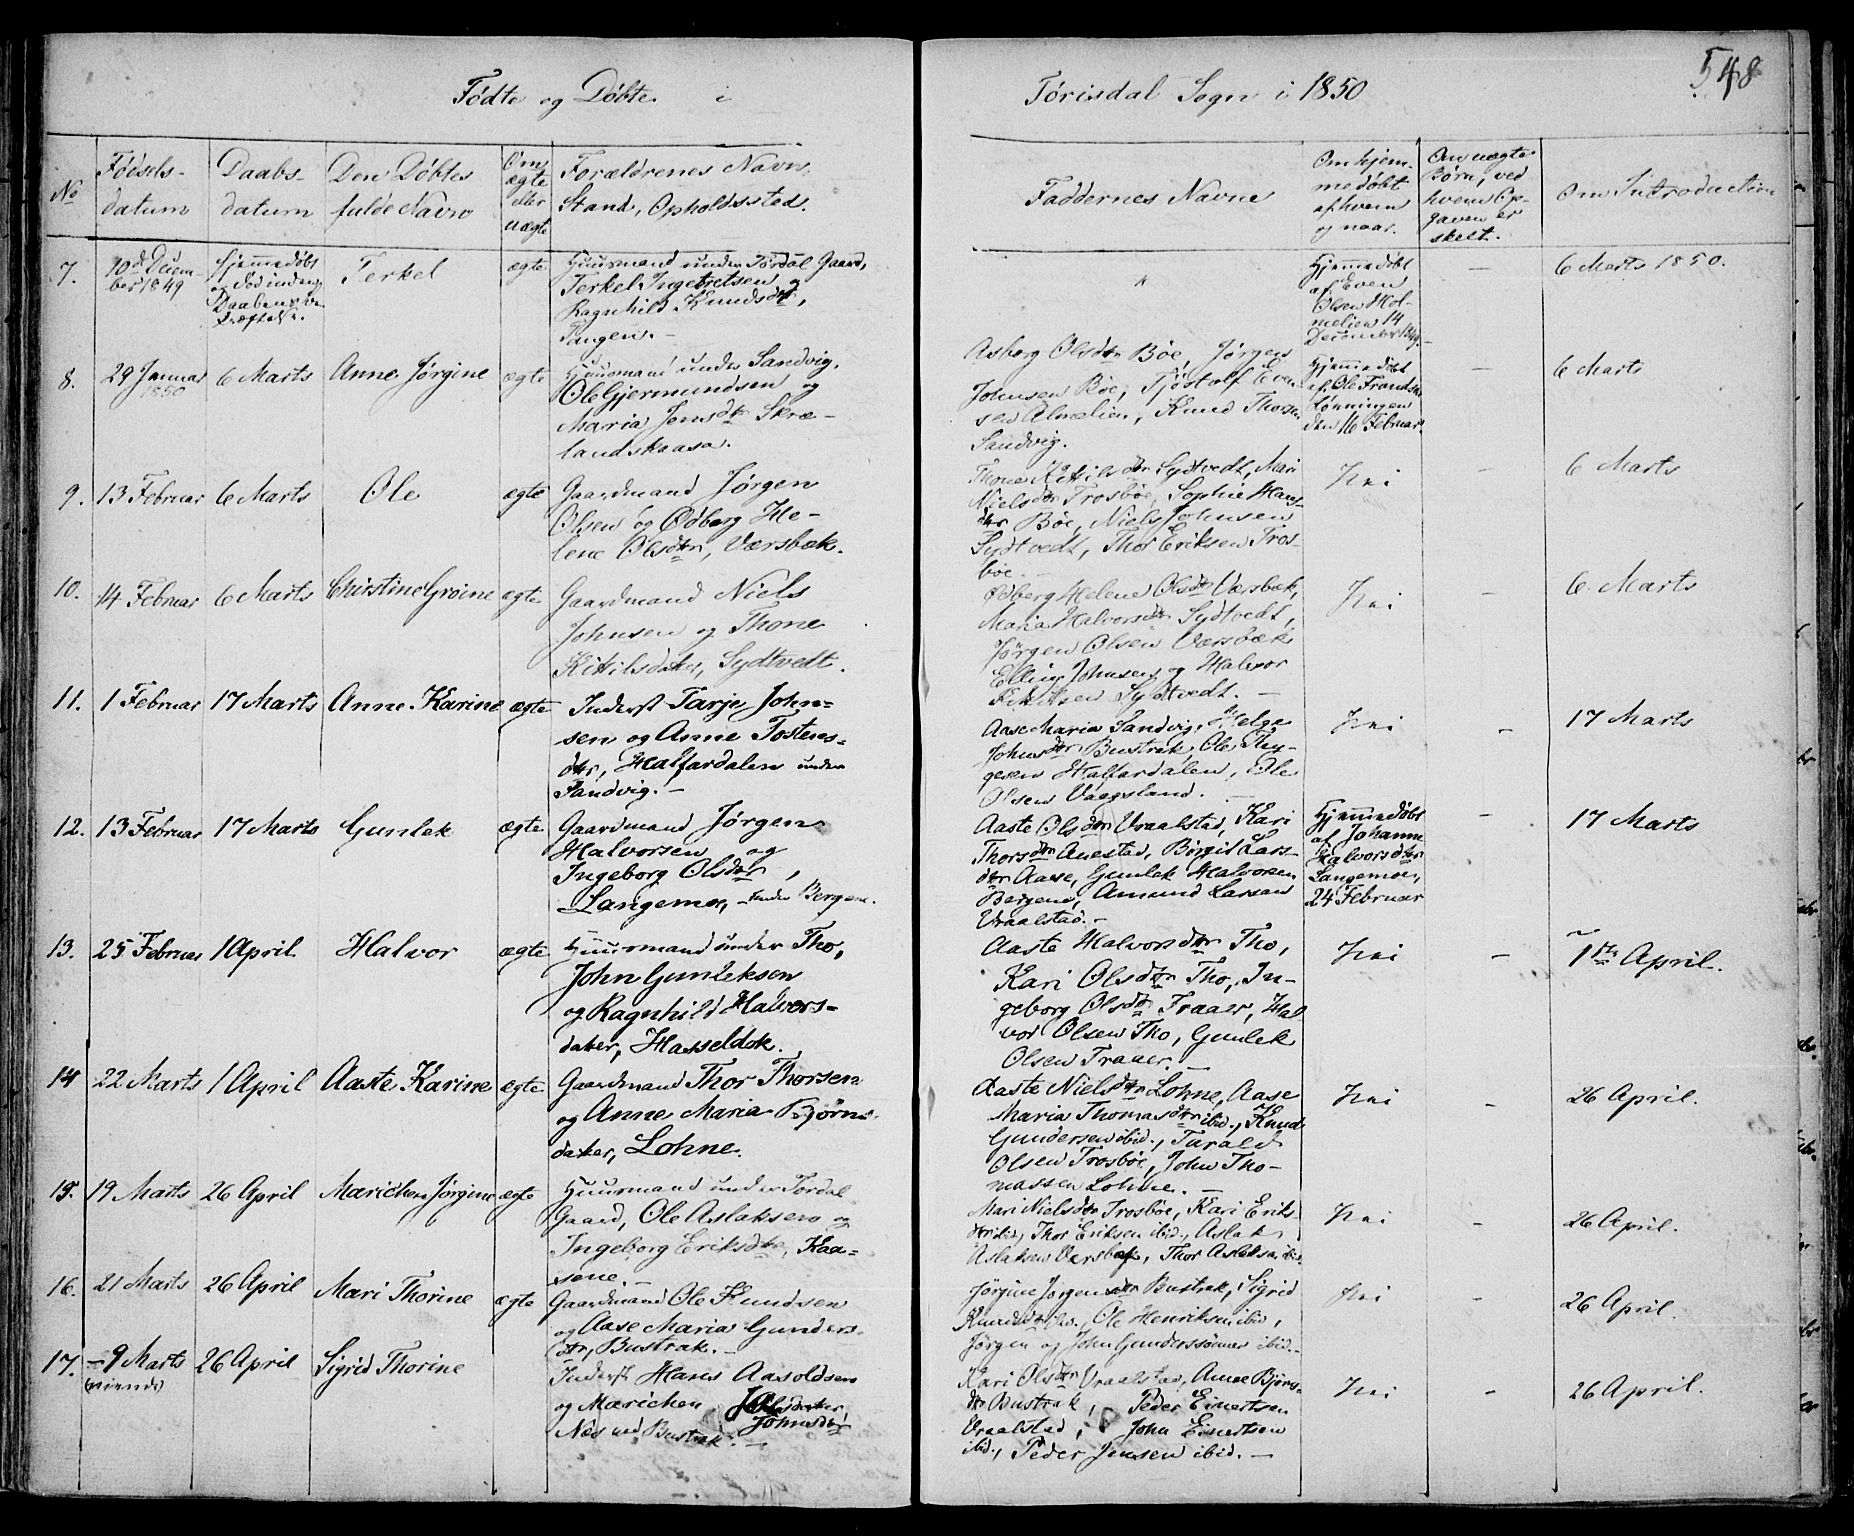 548
Fødte og Døbte i Tørisdal Sogn i 1850
No
Fødsels-
datum
Daabs-
datum
Den Døbtes
fulde Navn
Om
ægte
eller
uægte
Forældrenes Navn,
Stand, Opholdssted.
Faddernes Navne
Om hjem-
medøbt
af hvem
og naar.
Om uægte
Børn, ved
hvem Op-
gaven er
skeet.
Om Introduction
7.
10de Decem-
ber 1849
Hjemmedøbt
og død inden
Daabens be-
kræftelse.
Terkel
ægte
Huusmand under Tørdal Gaard,
Terkel Ingebretsen og
Ragnhild Knudsdtr,
Tangen. –
"
Hjemmedøbt
af Even
Olsen Hol-
melien 14
December 1849.
–
6 Marts 1850.
8.
29 Januar
1850
6 Marts
Anne Jørgine
ægte
Huusmand under Sandvig,
Ole Gjermundsen og
Maria Jensdtr Skræ-
landskaasa.
Asborg Olsdtr Bøe, Jørgen
Johnsen Bøe, Tjøstolf Even-
sen Almelien, Knud Thorsen
Sandvig.
Hjemmedøbt
af Ole Frandsen
Lønningen
den 16 Februar.
–
6 Marts
9.
13 Februar
6 Marts
Ole
ægte
Gaardmand Jørgen
Olsen og Ødberg He-
lene Olsdtr, Værsbæk.
Thone Kittilsdtr Sydtvedt, Mari
Nielsdtr Trosbøe, Sophie Hans-
dtr Bøe, Niels Johnsen
Sydtvedt, Thor Eriksen Tros-
bøe.
Nei
–
6 Marts
10.
14 Februar
6 Marts
Christine Grøine
ægte
Gaardmand Niels
Johnsen og Thone
Kittilsdatter, Sydtvedt.
Ødberg Helene Olsdtr Værsbæk,
Maria Halvorsdtr Sydtvedt,
Jørgen Olsen Værsbæk
Elling Johnsen og Halvor
Sydtvedt. –
Nei
–
6 Marts
11.
1 Februar
17 Marts
Anne Karine
ægte
Inderst Tarje John-
sen og Anne Tostens-
dtr, Halfardalen under
Sandvig. –
Aase Maria Sandvig, Helge
Johnsdtr Bustrak, Ole Thy-
gesen Halfardalen, Ole
Olsen Vaagsland.
Nei
–
17 Marts
12.
13 Februar
17 Marts
Gunlek
ægte
Gaardmand Jørgen
Halvorsen og
Ingeborg Olsdtr,
Langemoe, – under Bergene.
Aaste Olsdtr Vraalstad, Kari
Thorsdtr Anestad, Børgit Lars-
dtr Aase, Gunlek Halvorsen
Bergene, Amund Larsen
Vraalstad. –
Hjemmedøbt
af Johanne
Halvorsdtr
Langemoe,
24 Februar
–
17 Marts
13.
25 Februar
1 April
Halvor
ægte
Huusmand under Tho,
John Gunleksen
og Ragnhild Halvors-
datter, Hasseldok.
Aaste Halvorsdtr Tho,
Kari Olsdtr Tho, In-
geborg Olsdtr Fraaer, Hal
vor Olsen Tho, Gunlek
Olsen Traaer. –
Nei
–
1ste April.
14
22 Marts
1 April
Aaste Karine
ægte
Gaardmand Thor Thorsen
og Anne Maria Bjørns-
datter, Lohne.
Aaste Nielsdtr Lohne, Aase
Maria Thomasdtr ibid., Knud
Gundersen ibid., Tarald
Olsen Trosbøe, John Tho-
massen Lohne. –
Nei
–
26 April.
15.
19 Marts
26 April
Marichen Jørgine
ægte
Huusmand under Tørdal
Gaard, Ole Aslaksen og
Ingeborg Eriksdtr, Kaa-
sene. –
Mari Nielsdtr Trosbøe, Kari Eriks
dtr ibid., Thor Eriksen ibid., Aslak
Aslaksen Værsbæk, Thor Aslaksen ibid.
Nei
–
26 April.
16.
21 Marts
26 April
Mari Thorine
ægte
Gaardmand Ole Knudsen
og Aase Maria Gunders-
dtr, Bustrak. –
Jørgine Jørgensdtr Bustrak, Sigrid
Knudsdtr ibid., Ole Henriksen ibid.,
Jørgen og John Gunderssønner ibid. –
Nei
–
26 April.
17.
– 9 Marts
(niende)
26 April
Sigrid Thorine
Inderst Hans Aasoldsen
og Marichen
Johnsdtr
Næs ved Bustrak. –
Kari Olsdtr Vraalstad, Anne Bjørns-
dtr Bustrak, Peder Einertsen
Vraalstad, John Einertsen
ibid., Peder Jensen ibid. –
Nei
–
26 April.